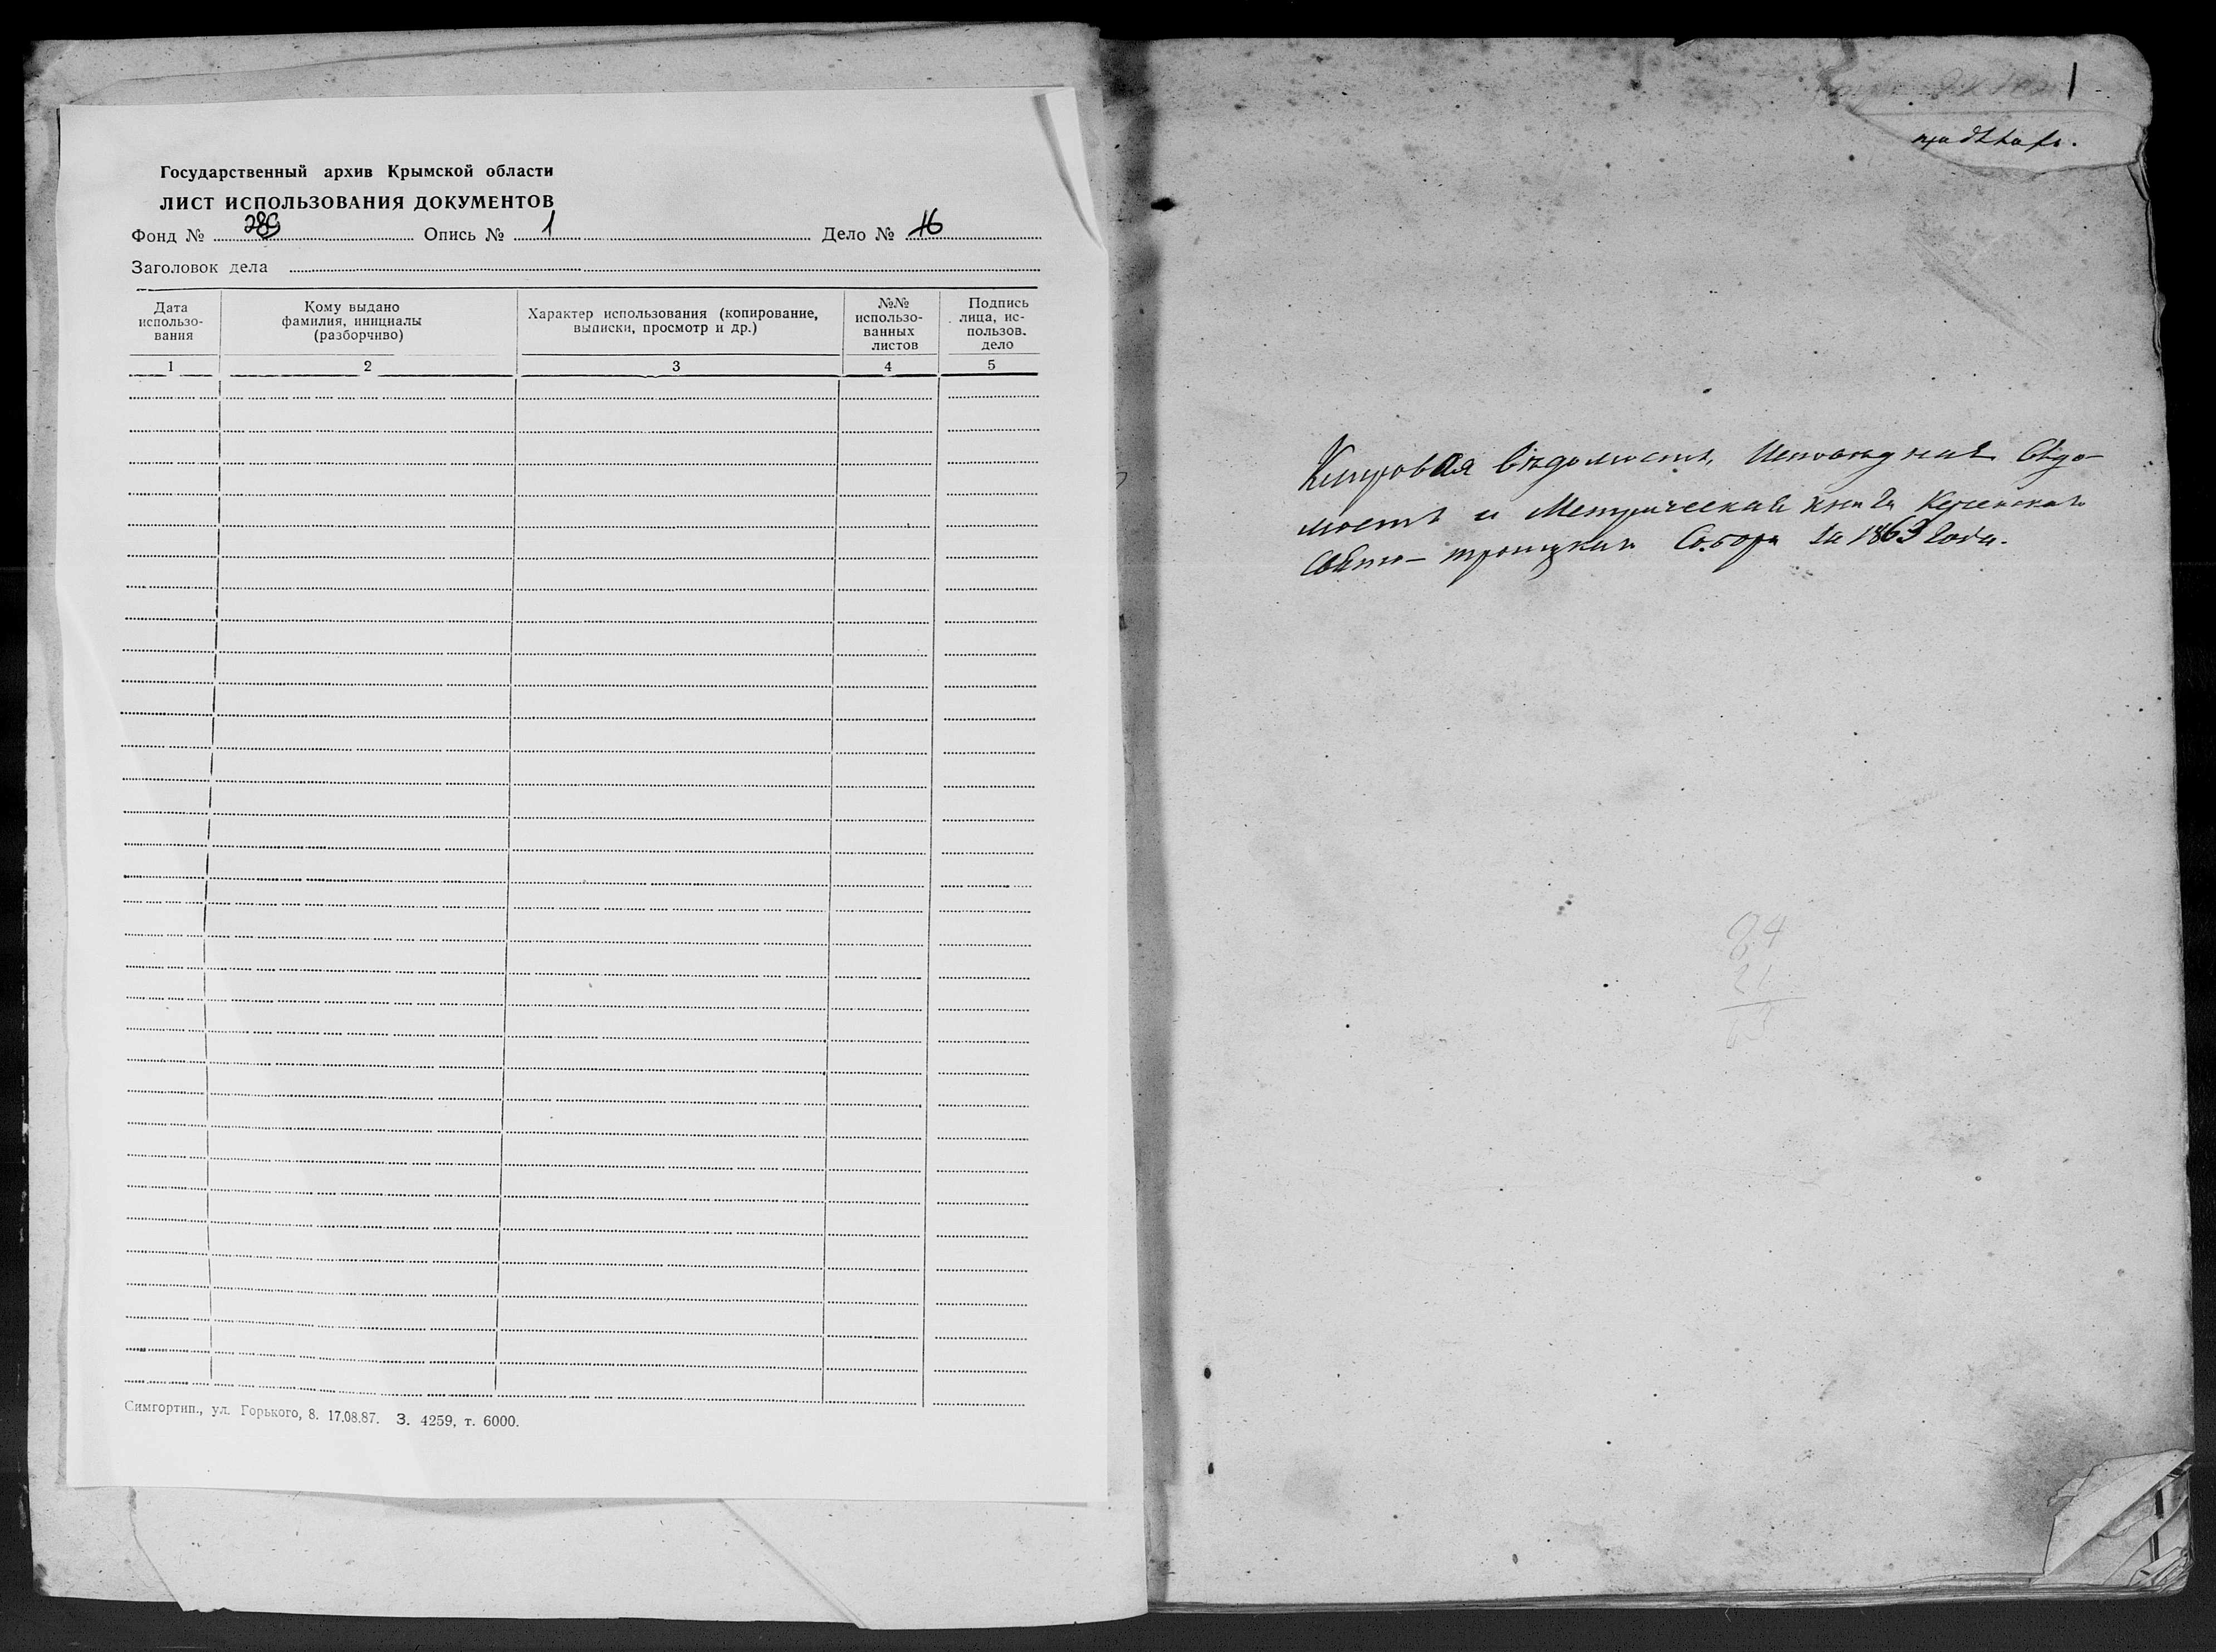 Государственный архив Крымской области
ЛИСТ ИСПОЛЬЗОВАНИЯ ДОКУМЕНТОВ
Фонд № 289 Опись № 1 Дело № 16
Заголовок дела
Дата использо- вания
Кому выдано фамилия, инициалы (разборчиво)
Характер использования (копирование, выписки, просмотр и др.)
№№ использо- ванных листов
Подпись лица, ис- пользов. дело
1 2 3 4 5
Симгортип., ул. Горького, 8. 17.08.87. З. 4259, т. 6000.
1
Клировая вѣдомость, Исповѣдная вѣдо-
мость и Метрическая книга Керченскаго
Свято-троицкаго Собора за 1863 года.